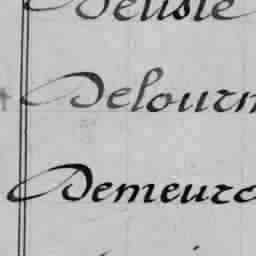 Delisle
Delourm
Demeure